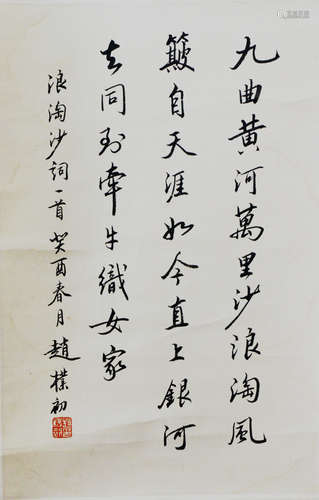 九曲黄河萬里沙浪淘風
簸自天涯如今直上銀河
去同到牽牛織女家
浪淘沙詞一首 癸酉春月 趙樸初